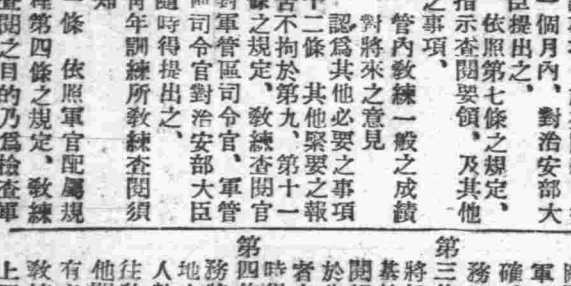 一個月內、對治安部大
臣提出之、
依照第七條之規定、
指示查閱要領、及其他
之事項、
管內敎練一般之成績
對將來之意見
認爲其他必要之事項
十二條 其他緊要之報
吿不拘於第九、第十一
條之規定、敎練查閱官
對軍管區司令官、軍管
區司令官對治安部大臣
隨時得提出之、
靑年訓練所敎練查閱須
知
一條 依照軍官配屬規
程第四條之規定、敎練
查閱之目的乃爲檢查軍
軍
確
務
第三
將
基
閱
於
者
時
第四
務
地
人
往
他
有
敎
上